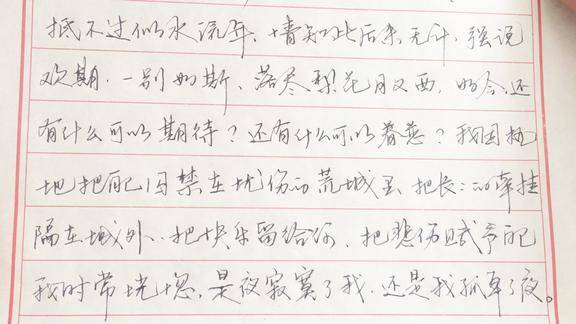 抵不过似水流年。情知此后来无计，强说
欢期。一别如斯，落尽梨花月又西，如今，还
有什么可以期待？还有什么可以眷恋？我固执
地把自己囚禁在忧伤的荒城里，把长长的牵挂
隔在城外，把快乐留给你，把悲伤赋予自己
我时常恍惚，是夜寂寞了我，还是我孤单了夜。